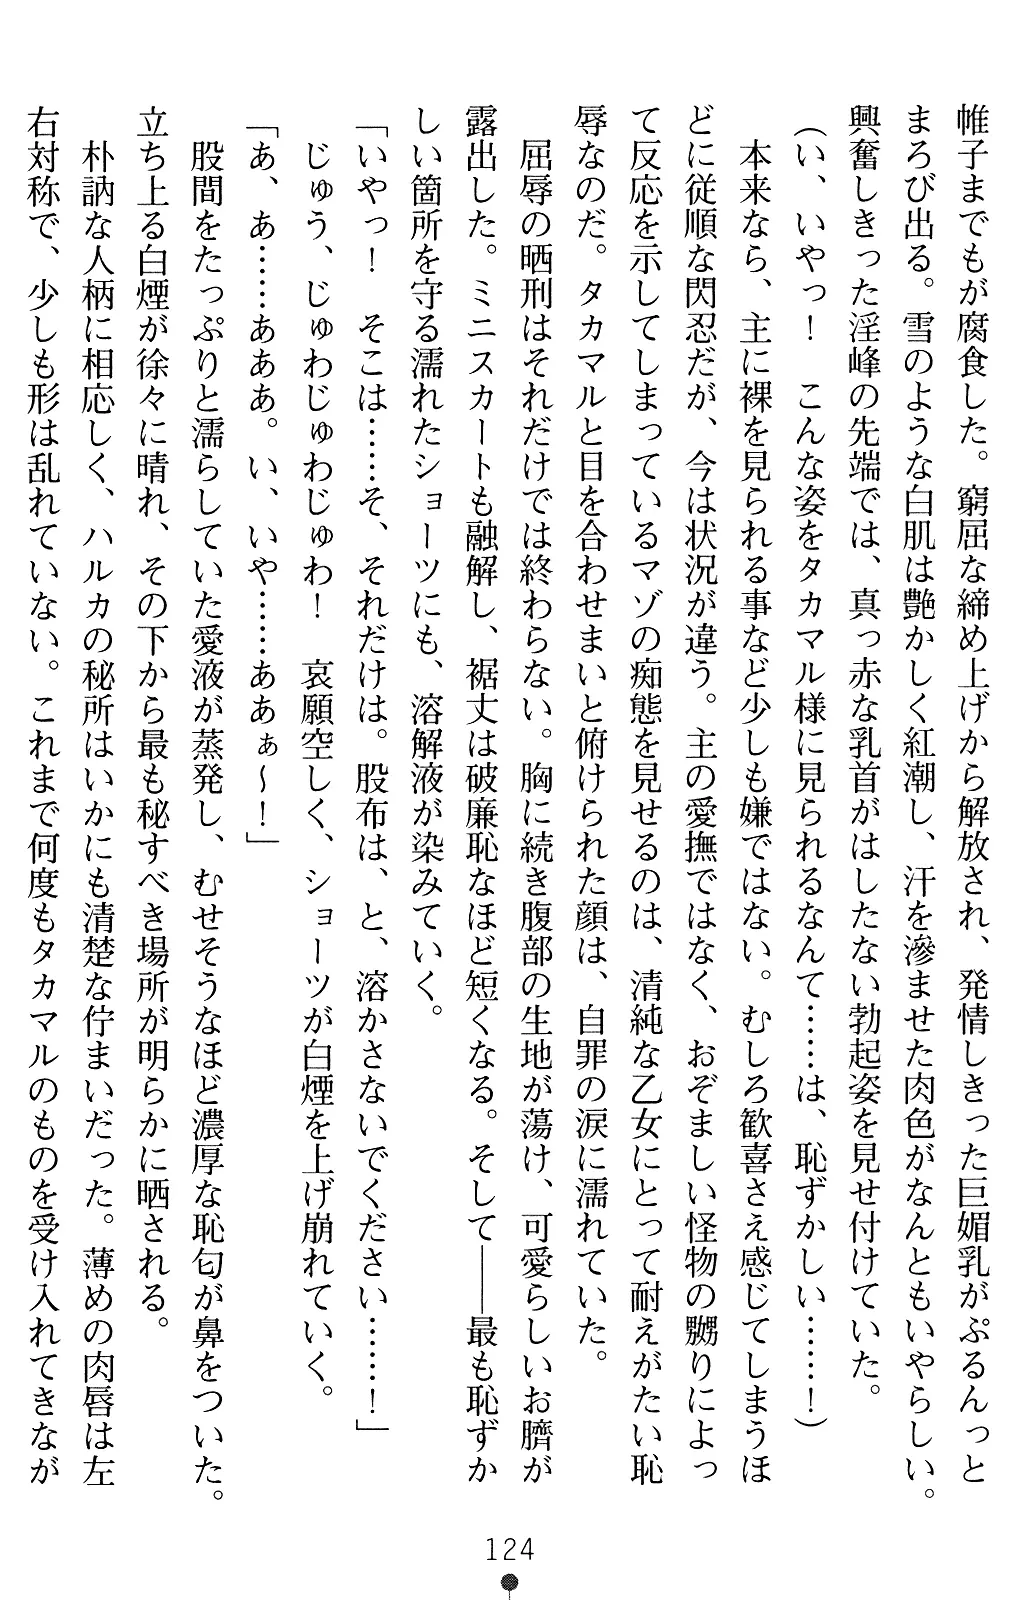 帷子までもが腐食した。窮屈な締め上げから解放され、発情しきった巨媚乳がぷるんっと
まろび出る。雪のような白肌は艶かしく紅潮し、汗を滲ませた肉色がなんともいやらしい。
興奮しきった淫峰の先端では、真っ赤な乳首がはしたない勃起姿を見せ付けていた。
（い、いやっ！　こんな姿をタカマル様に見られるなんて……は、恥ずかしい……！）
本来なら、主に裸を見られる事など少しも嫌ではない。むしろ歓喜さえ感じてしまうほ
どに従順な閃忍だが、今は状況が違う。主の愛撫ではなく、おぞましい怪物の嬲りによっ
て反応を示してしまっているマゾの痴態を見せるのは、清純な乙女にとって耐えがたい恥
辱なのだ。タカマルと目を合わせまいと俯けられた顔は、自罪の涙に濡れていた。
屈辱の晒刑はそれだけでは終わらない。胸に続き腹部の生地が蕩け、可愛らしいお臍が
露出した。ミニスカートも融解し、裾丈は破廉恥なほど短くなる。そして――最も恥ずか
しい箇所を守る濡れたショーツにも、溶解液が染みていく。
「いやっ！　そこは……そ、それだけは。股布は、と、溶かさないでください……！」
じゅう、じゅわじゅわじゅわ！　哀願空しく、ショーツが白煙を上げ崩れていく。
「あ、あ……あああ。い、いや……ああぁ～！」
股間をたっぷりと濡らしていた愛液が蒸発し、むせそうなほど濃厚な恥匂が鼻をついた。
立ち上る白煙が徐々に晴れ、その下から最も秘すべき場所が明らかに晒される。
朴訥な人柄に相応しく、ハルカの秘所はいかにも清楚な佇まいだった。薄めの肉唇は左
右対称で、少しも形は乱れていない。これまで何度もタカマルのものを受け入れてきなが
124